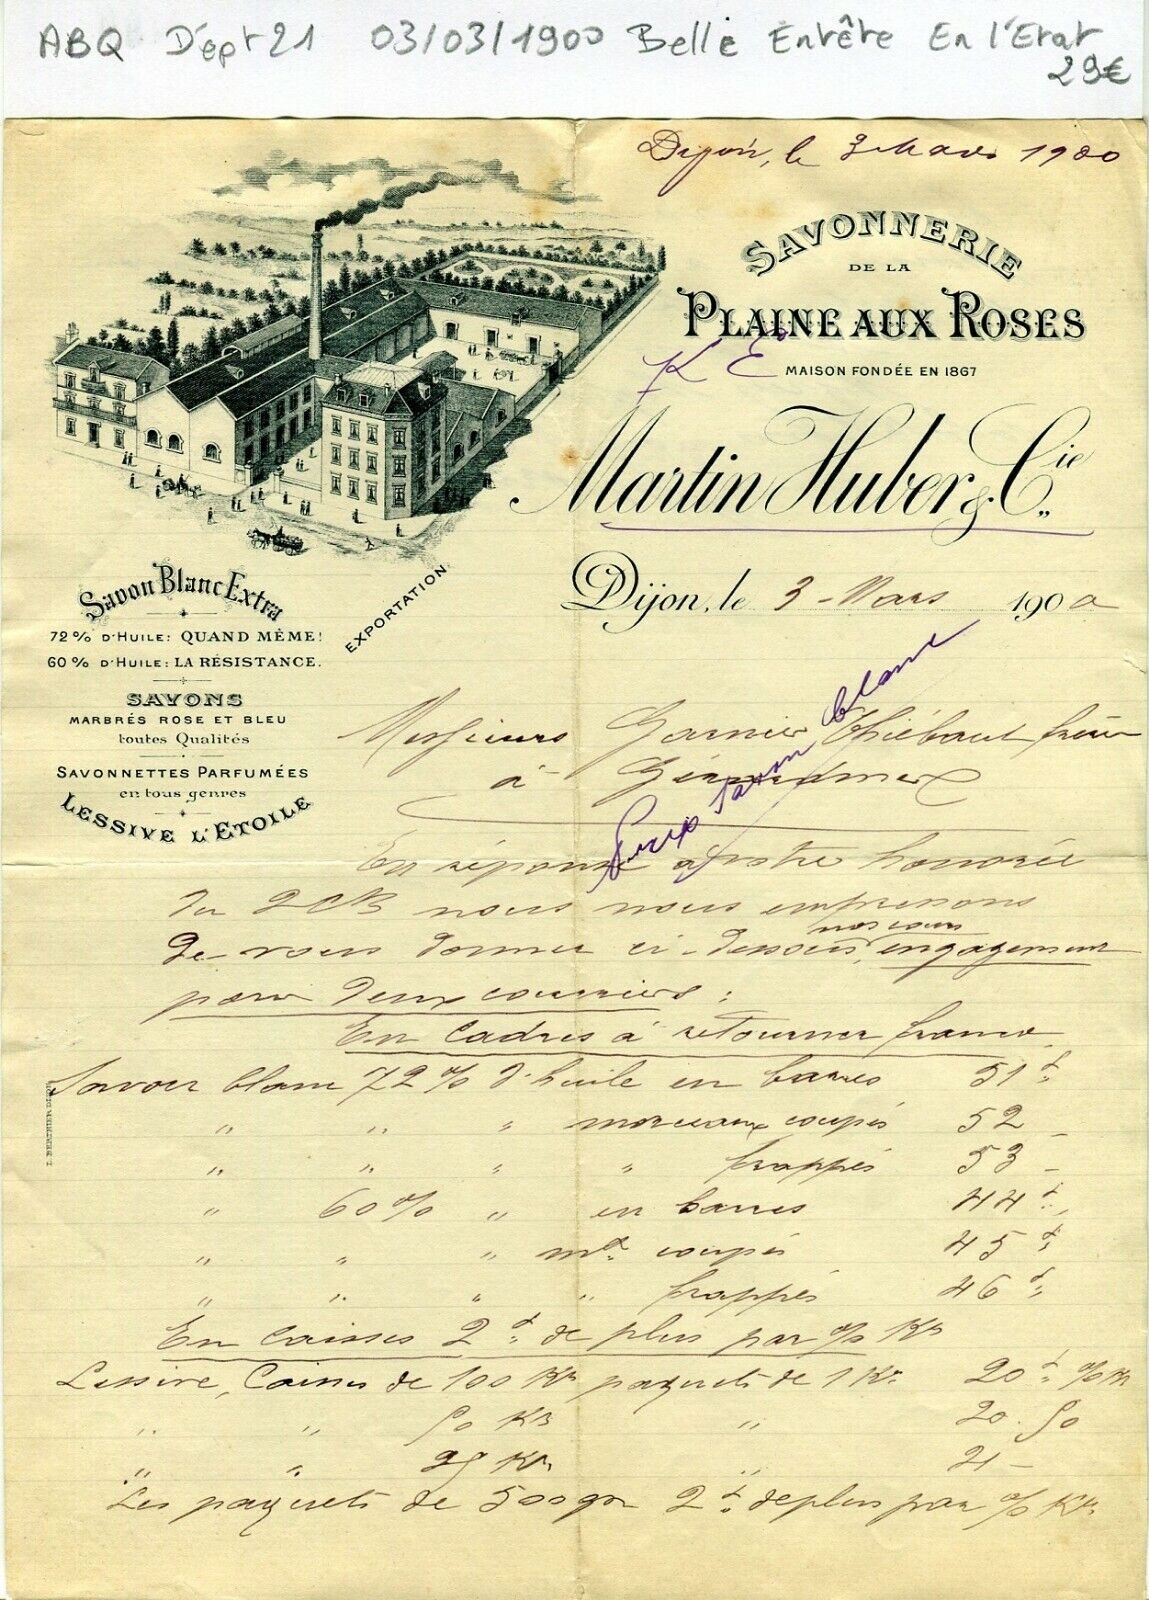 ABQ Dépt 21 03/03/1900 Belle Entête En l'Etat
29€
Dijon, le 3 Mars 1900
SAVONNERIE
DE LA
PLAINE AUX ROSES
MAISON FONDÉE EN 1867
Martin Huber & Cie
Dijon, le 3 Mars 1900
EXPORTATION
Savon Blanc Extra
72% D'HUILE: QUAND MÊME!
60% D'HUILE: LA RÉSISTANCE.
SAVONS
MARBRÉS ROSE ET BLEU
toutes Qualités
SAVONNETTES PARFUMÉES
en tous genres
LESSIVE L'ETOILE
Messieurs Garnier Thiébaut frères
à Gérardmer
savon blanc
En réponse à votre honorée
du 2 nous nous empressons
de vous donner ci-dessous, nos cours engagement
pour deux courriers :
En cadres à retourner franco
Savon blanc 72% d'huile en barres 51 f.
" " " morceaux coupés 52 -
" " " " frappés 53 -
" 60% " en barres 44 f.
" " " mx coupés 45 f.
" " " " frappés 46 f.
En caisses 2 f. de plus par % Ks
Lessive, Caisses de 100 Ks paquets de 1 K. 20 f. % Ks
" " 50 Ks " 20.50
" " 25 Ks " 21 -
Les paquets de 500 gr 2 f. de plus par % Ks